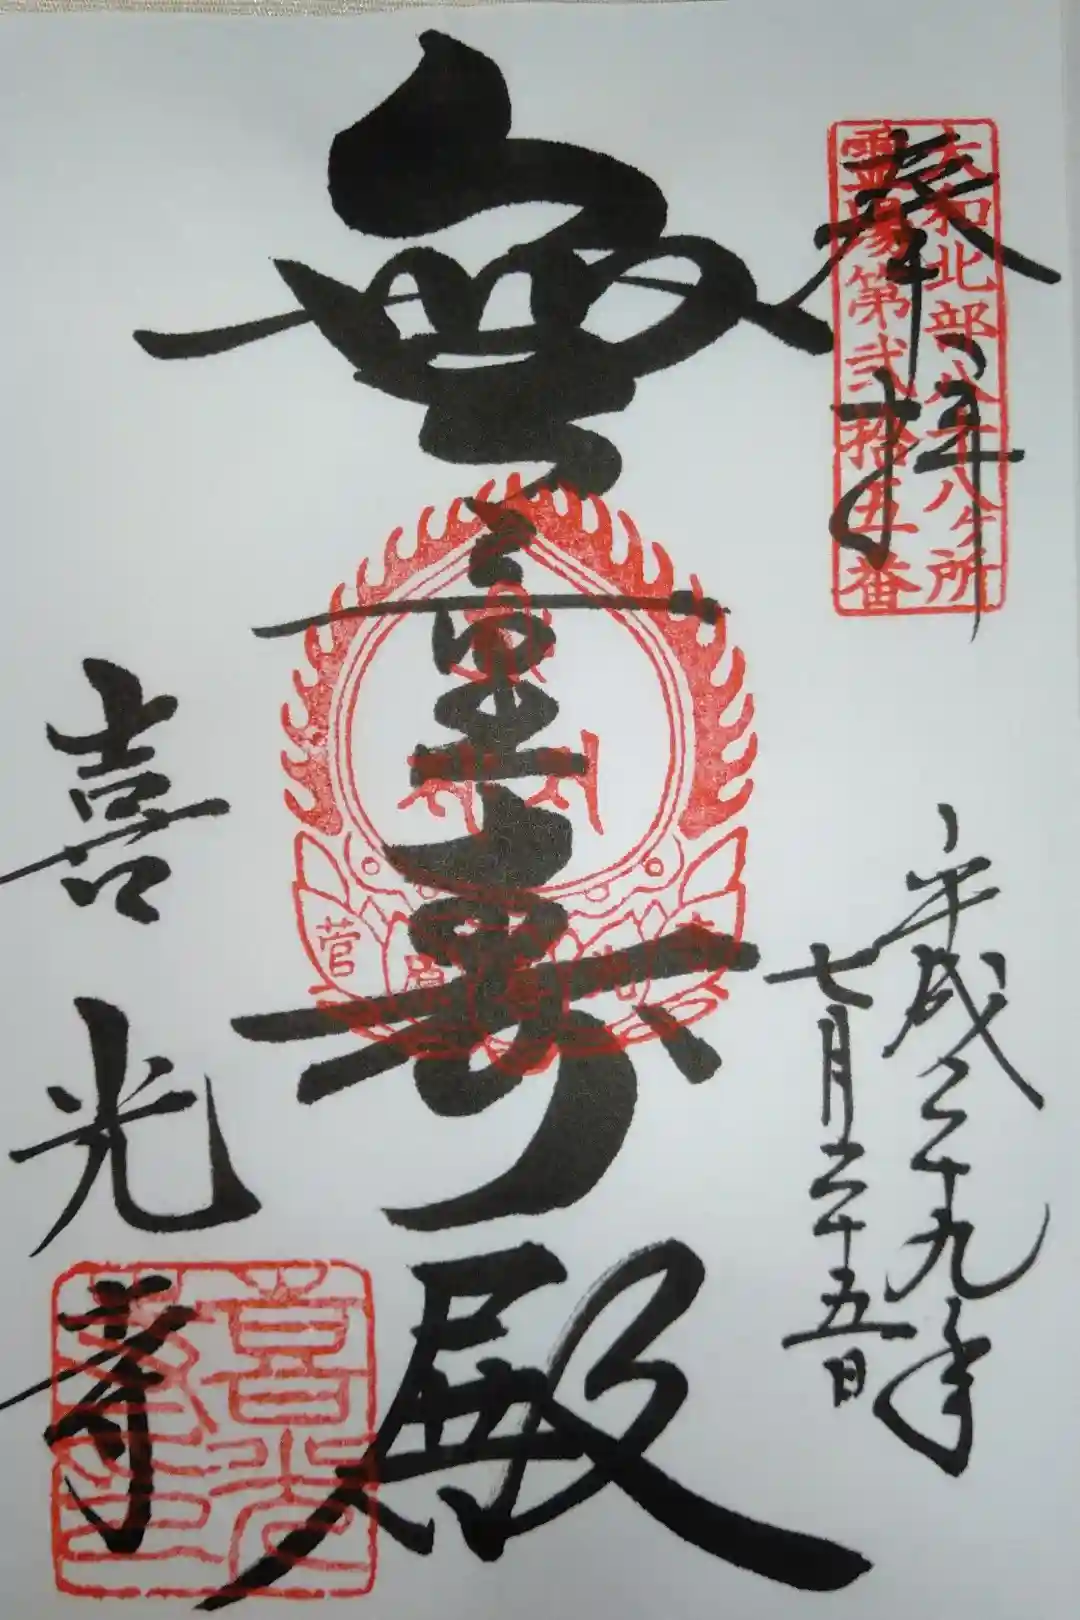 大和北部八十八ヶ所
霊場第弐拾五番
奉拝
平成二十九年
七月二十五日
無量寿殿
菅原
喜光寺
喜光